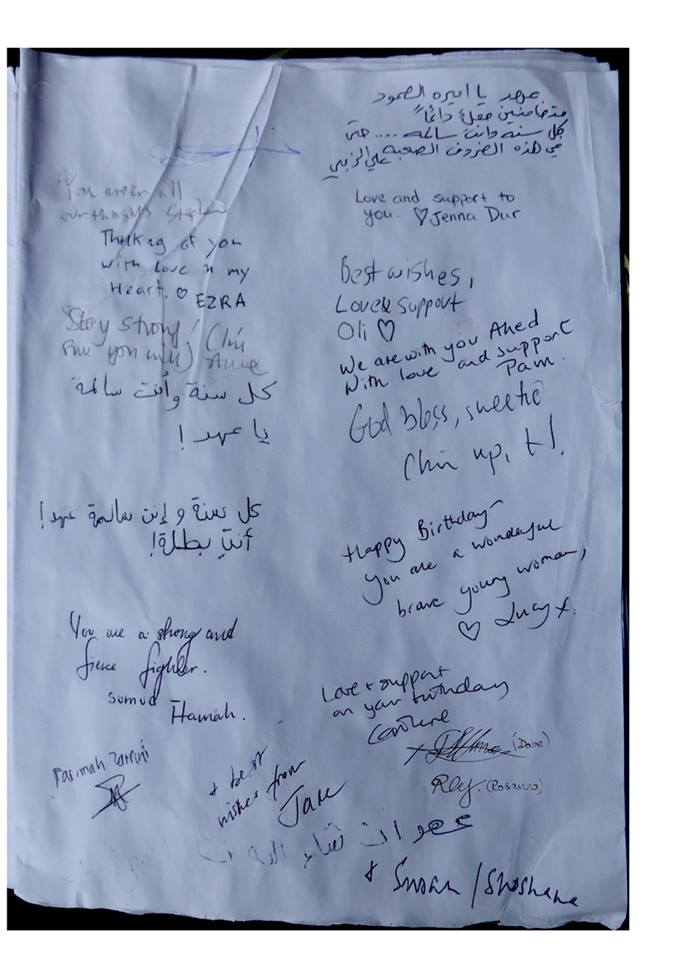 You are in all
our thoughts
Thinking of you
with love in my
Heart. ♡ EZRA
Stay strong!
كل سنة وأنت سالمة
يا عهد !
كل سنة و إنت سالمة عهد!
أنتِ بطلة!
You are a strong and
fierce fighter.
sumud
Hannah.
عهد يا اميره الصمود
متضامنين معك دائماً
كل سنه وانت سالمه .... حتى
في هذه الضروف الصعبة علي الزبي
Love and support to
you. ♡ Jenna Dur
Best wishes,
Love & support
Oli ♡
We are with you Ahed
With love and support
Pam.
God bless, sweetie
Chin up,
Happy Birthday-
You are a wonderful
brave young woman,
♡ Lucy x.
Love + support
on your birthday
Caroline
(Dave)
(Rosanna)
+ best
wishes from
Jane
+ Susan / Shoshana